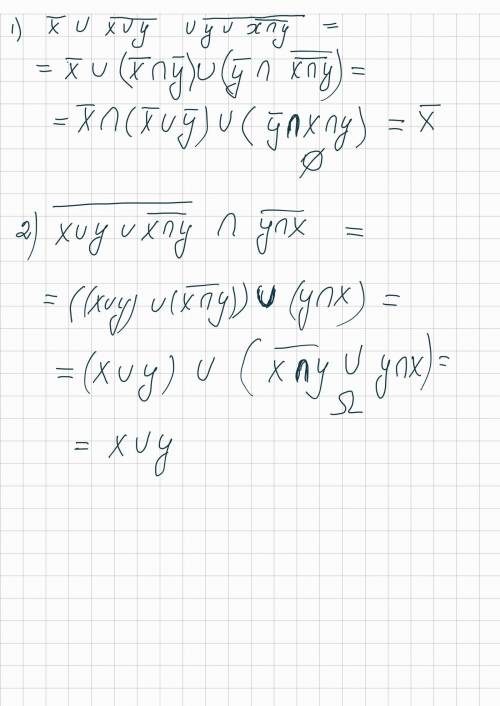 1) x̅ ∪ \overline{x∪y} ∪ \overline{y ∪ \overline{x∩y}} =
= x̅ ∪ (x̅∩y̅)∪(y̅ ∩ \overline{\overline{x∩y}}) =
= x̅∩(x̅∪y̅)∪(y̅∩x∩y) = x̅
∅
2) \overline{x∪y ∪ \overline{x∩y}} ∩ \overline{y∩x} =
= ((x∪y) ∪(\overline{x∩y})) ∪ (y∩x) =
= (x∪y) ∪ (\overline{x∩y} ∪ y∩x) =
Ω
= x∪y